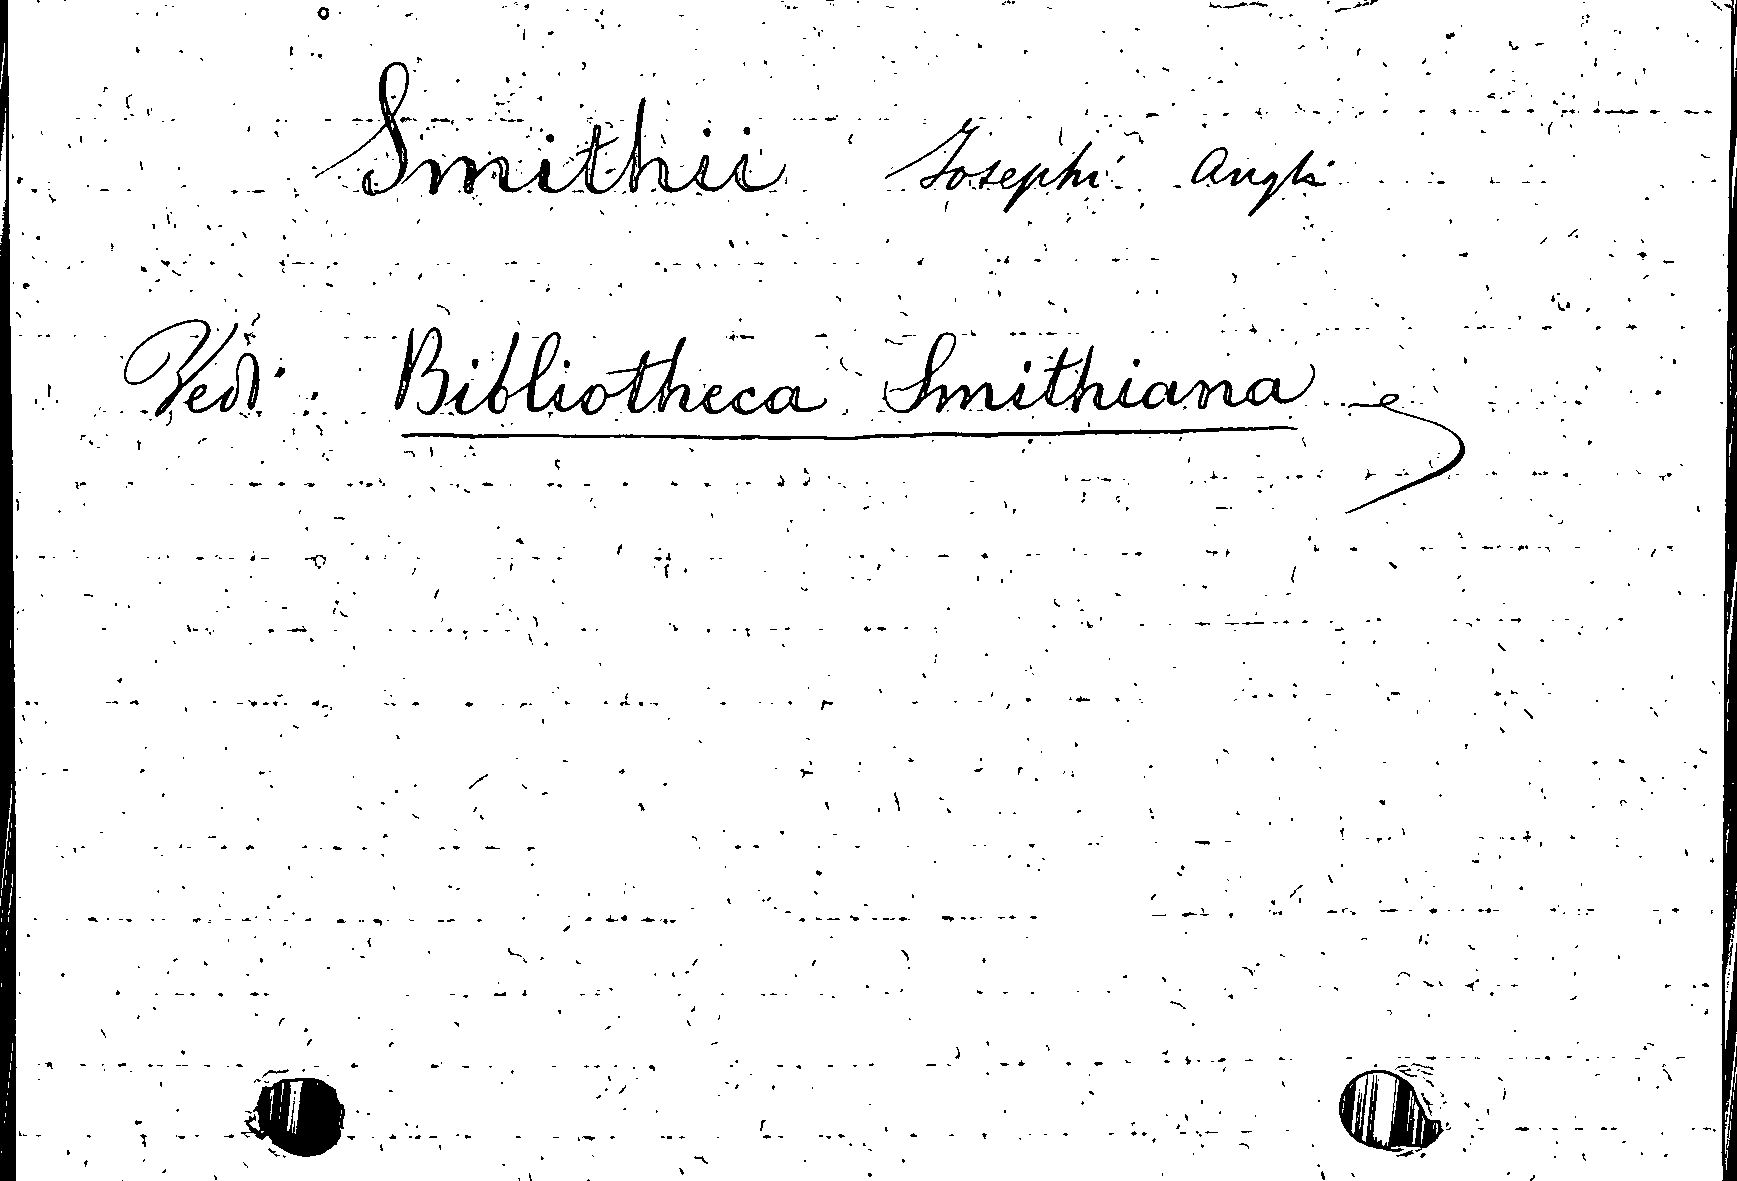 Smithii Josephi Angli
Vedi: Bibliotheca Smithiana